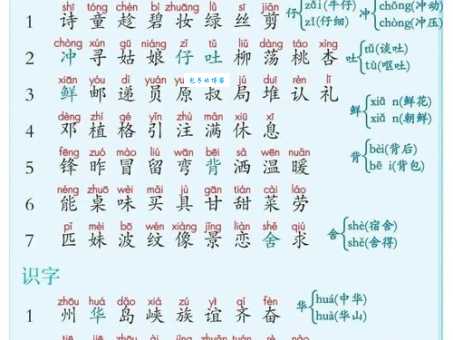 shī tóng chèn bì zhuāng lǜ sī jiǎn
1 诗 童 趁 碧 妆 绿 丝 剪
仔 zǎi(牛仔) zǐ(仔细)
冲 chòng(冲动) chōng(冲压)
chòng xún gū niáng zǐ tǔ liǔ dàng táo xìng
2 冲 寻 姑 娘 仔 吐 柳 荡 桃 杏
吐 tǔ(谈吐) tù(呕吐)
xiān yóu dì yuán yu jú duī rèn lǐ
3 鲜 邮 递 员 原 叔 局 堆 认 礼
鲜 xiān(鲜花) xiǎn(朝鲜)
dèng zhí gé yǐn zhù mǎn xiū xī
4 邓 植 格 引 注 满 休 息
fēng zuó mào liú wān bēi sǎ wēn nuǎn
5 锋 昨 冒 留 弯 背 洒 温 暖
背 bèi(背后) bēi(背包)
néng zhuō wèi mǎi jù gān tián cài láo
6 能 桌 味 买 具 甘 甜 菜 劳
pǐ mèi bō wén xiàng jǐng liàn shě qiú
7 匹 妹 波 纹 像 景 恋 舍 求
舍 shè(宿舍) shě(舍得)
识字
zhōu huá dǎo xiá zú yì qí fèn
1 州 华 岛 峡 族 谊 齐 奋
华 huá(中华) huà(华山)